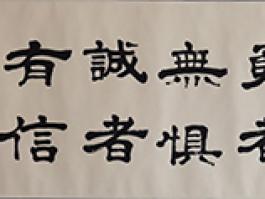 勇者
無懼
誠者
有信